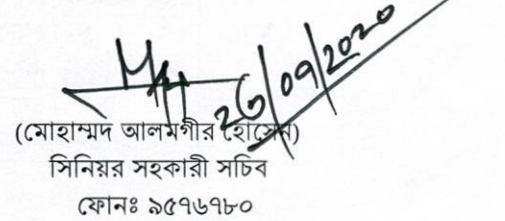 26/09/2020
(মোহাম্মদ আলমগীর হোসেন)
সিনিয়র সহকারী সচিব
ফোনঃ ৯৫৭৬৭৮০